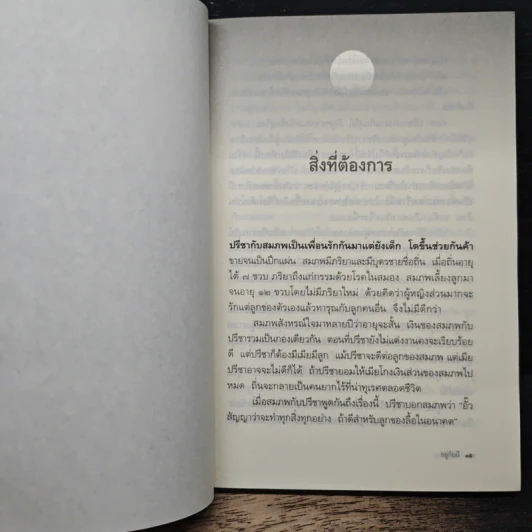 สิ่งที่ต้องการ
ปรีชากับสมภพเป็นเพื่อนรักกันมาแต่ยังเด็ก โตขึ้นช่วยกันค้า
ขายจนเป็นปึกแผ่น สมภพมีภริยาและมีบุตรชายชื่อถิ่น เมื่อถิ่นอายุ
ได้ ๗ ขวบ ภริยาถึงแก่กรรมด้วยโรคในสมอง สมภพเลี้ยงลูกมา
จนอายุ ๑๒ ขวบโดยไม่มีภริยาใหม่ ด้วยคิดว่าผู้หญิงส่วนมากจะ
รักแต่ลูกของตัวเองแล้วทารุณกับลูกคนอื่น จึงไม่มีดีกว่า
สมภพสังหรณ์ใจมาหลายปีว่าอายุจะสั้น เงินของสมภพกับ
ปรีชารวมเป็นกองเดียวกัน ตอนที่ปรีชายังไม่แต่งงานคงจะเรียบร้อย
ดี แต่ปรีชาก็ต้องมีเมียมีลูก แม้ปรีชาจะดีต่อลูกของสมภพ แต่เมีย
ปรีชาอาจจะไม่ดีก็ได้ ถ้าปรีชายอมให้เมียโกงเงินส่วนของสมภพไป
หมด ถิ่นจะกลายเป็นคนยากไร้ที่น่าทุเรศตลอดชีวิต
เมื่อสมภพกับปรีชาพูดกันถึงเรื่องนี้ ปรีชาบอกสมภพว่า “อั๊ว
สัญญาว่าจะทำทุกสิ่งทุกอย่าง ถ้าดีสำหรับลูกของลื้อในอนาคต”